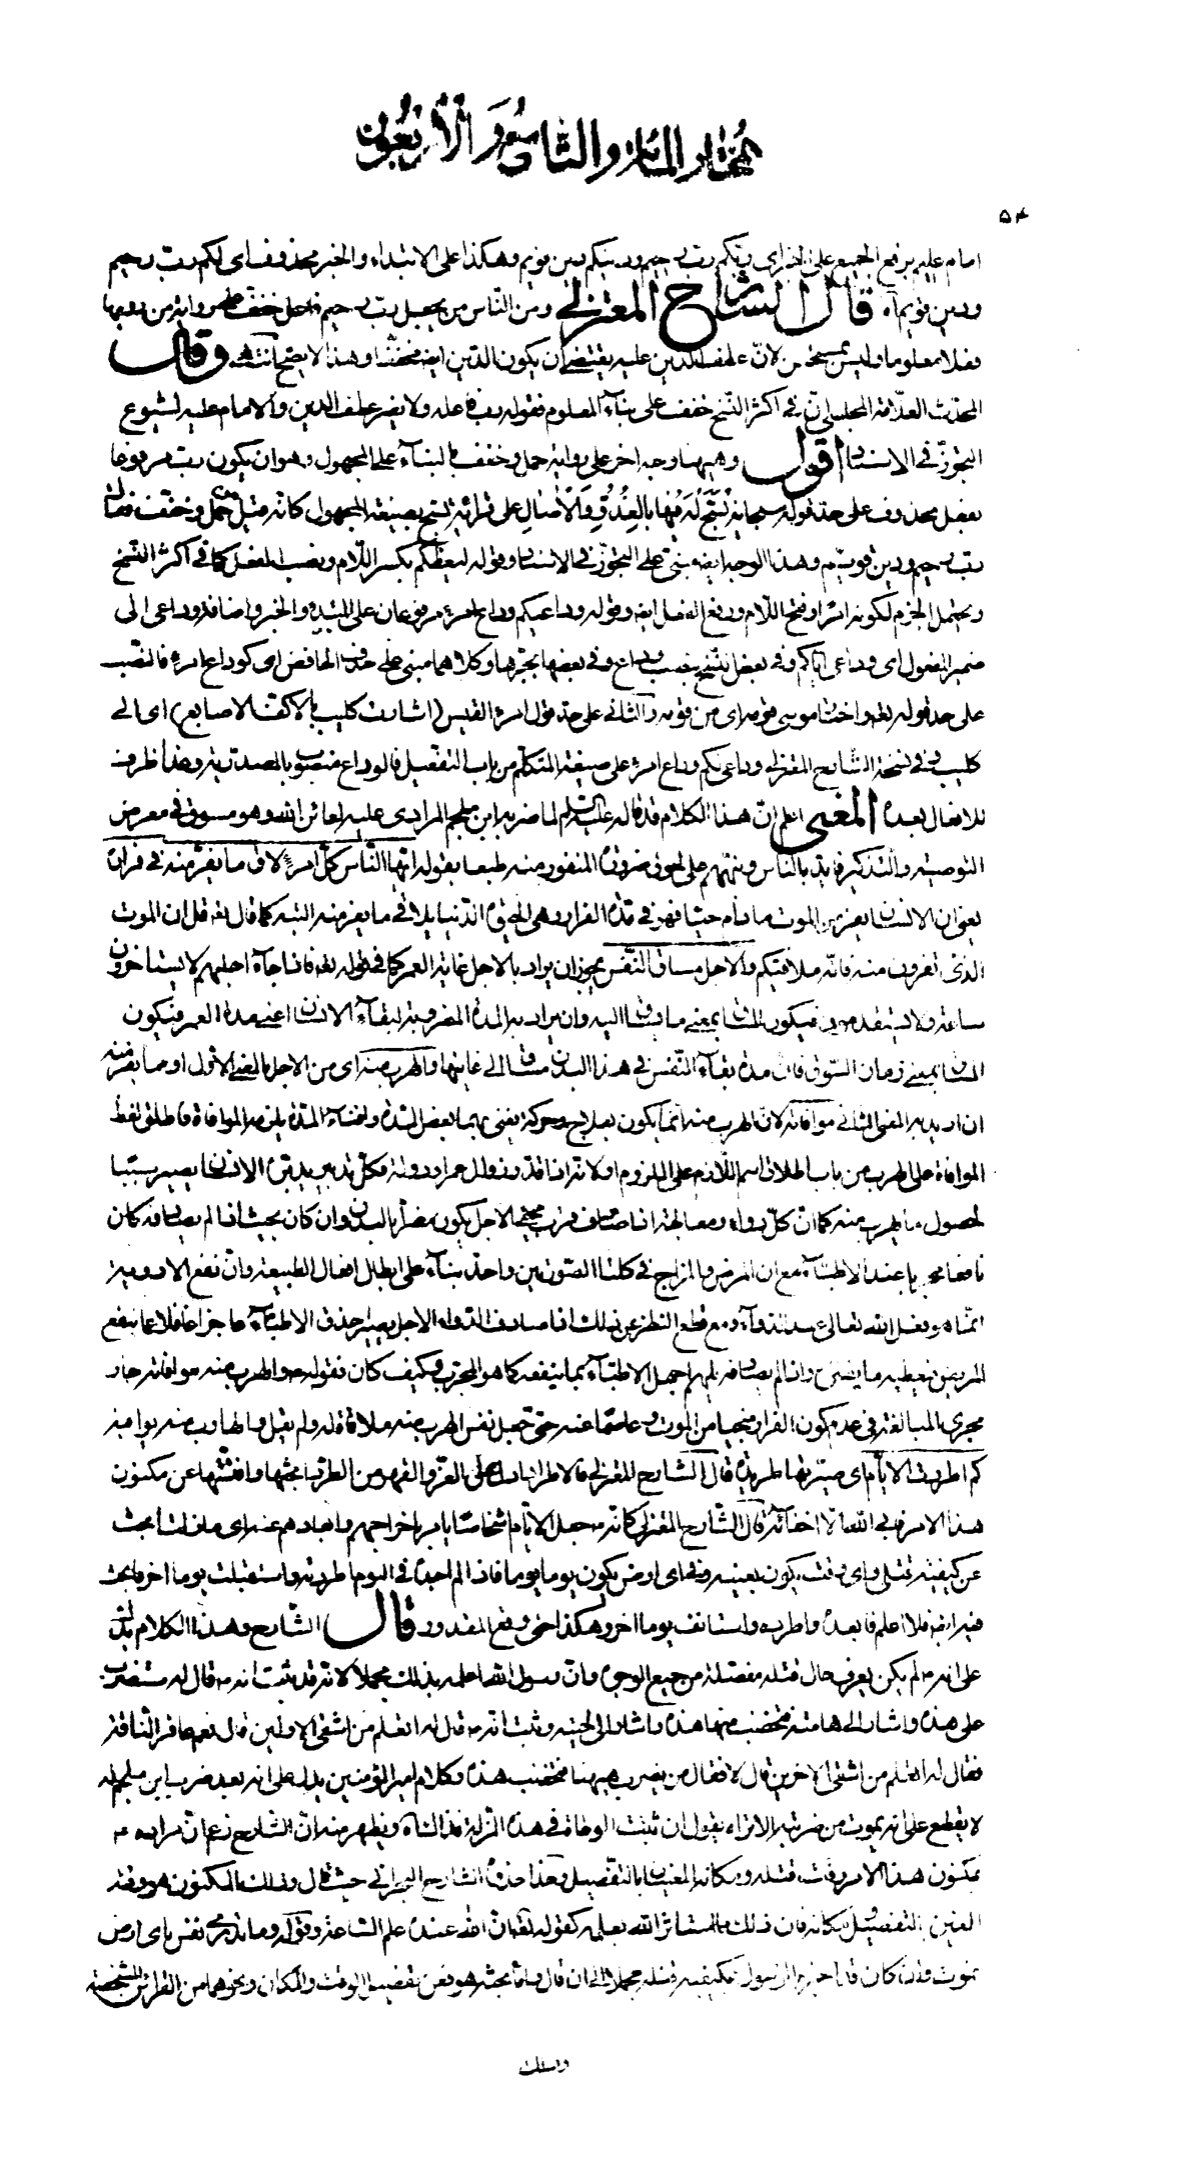 المختار المائة والتاسع والأربعون
۵۴
امام عليم برفع الجميع على الخبر اى ربّكم ربّ رحيم ودينكم دين قويم وهكذا على الابتداء والخبر محذوف اى لكم ربّ رحيم
ودين قويم آه قال الشارح المعتزلى ومن النّاس من يجعل ربّ رحيم فاعل خفّف على رواية من رويها
فعلا معلوما وليس بمستحسن لانّ عطف الدّين عليه يقتضى أن يكون الدّين ايضا مخفّفا وهذا لا يصحّ انتهى وقال
المحدّث العلاّمة المجلسىّ انّ فى اكثر النّسخ خفّف على بناء المعلوم فقوله ربّ فاعله ولا يضرّ عطف الدين والامام عليه لشيوع
التجوّز فى الاسناد اقول وههنا وجه اخر على رواية حمل وخفّف بالبناء على المجهول وهو ان يكون ربّ مرفوعا
بفعل محذوف على حدّ قوله سبحانه يُسَبَّحُ لَهُ فيها بِالْغُدُوِّ وَالْآصالِ على قرائة يسبّح بصيغة المجهول كانّه قيل من حمل وخفّف فقال
ربّ رحيم ودين قويم وهذا الوجه ايضا مبنىّ على التجوّز فى الاسناد وقوله ليعظكم بكسر اللّام ونصب الفعل كما فى اكثر النّسخ
ويحتمل الجزم لكونه امرا وفتح اللّام ورفع الفعل ايضا وقوله وداعيكم وداع امرء مرفوعان على المبتدء والخبر واضافة وداعى الى
ضمير المفعول اى وداعى ايّاكم وفى بعض النّسخ بنصب وداع وفى بعضها بجرّها وكلاهما مبنى على حذف الخافض اى كوداع امرء فالنّصب
على حدّ قوله تعالى واختار موسى قومه اى من قومه والثّانى على حدّ قول امرء القيس (اشارت كليب بالاكفّ الاصابع) اى الى
كليب وفى نسخة الشّارح المعتزلى ودّاعيكم وداع امرء على صيغة المتكلّم من باب التفعيل فالوداع منصوب بالمصدريّة وغدا ظرف
للافعال بعده المعنى اعلم انّ هذا الكلام قد قاله عليه السّلام لما ضربه ابن ملجم المرادى عليه لعائن اللّه وهو مسوق فى معرض
التوصية والتّذكير فابتدء بالنّاس ونبّههم على لحوق ضرورة المنفور منه طبعا بقوله ايّها النّاس كلّ امرىء لاق ما يفرّ منه فى فراره
يعنى ان الانسان يفرّ من الموت ما دام حيّا فهو فى مدّة الفرار وهى الحيوة الدّنيا يلاقى ما يفرّ منه البتّة كما قال تعالى قل ان الموت
الذى تفرّون منه فانّه ملاقيكم والاجل مساق النّفس يجوز ان يراد بالاجل غاية العمر كما فى قوله تعالى فاذا جاء اجلهم لا يستأخرون
ساعة ولا يستقدمون فيكون المساق بمعنى ما يساق اليه وان يراد به المدّة المضروبة لبقاء الانسان اعنى مدّة العمر فيكون
المساق بمعنى زمان السّوق فانّ مدّة بقاء النّفس فى هذا البدن مساق الى غايتها والهرب منه اى من الاجل بالمعنى الاوّل او ممّا يفرّ منه
ان اريد به المعنى الثانى موافاته لانّ الهرب منه انّما يكون بعلاج وحركة يفنى بهما بعض المدّة وافناء المدّة يلزمه الموافاة فاطلق لفظ
الموافاة على الهرب من باب اطلاق اسم اللّازم على الملزوم او لانّه اذا قدّر زوال عمر او دولة فكلّ تدبير يدبّره الانسان يصير سببا
لحصول ما يهرب منه كما انّ كلّ دواء ومعالجة اذا صادف قرب مجىء الاجل يكون مضرّا بالبدن وان كان بحيث اذا لم يصادفه كان
نافعا مجرّبا عند الاطبّاء مع انّ المرض والمزاج فى كلتا الصّورتين واحد بناء على ابطال افعال الطبيعة وانّ نفع الادوية
انّما هو بفعل اللّه تعالى عند الدواء ومع قطع النظر عن ذلك اذا صادف الدّواء الاجل يصير حذق الاطبّاء عاجزا غافلا عمّا ينفع
المريض فيعطيه ما يضرّه واذا لم يصادفه يلهم اجهل الاطبّاء بما ينفعه كما هو المجرّب وكيف كان فقوله والهرب منه موافاته جار
مجرى المبالغة فى عدم كون الفرار منجيا من الموت وعاصما عنه حتّى جعل نفس الهرب منه ملاقاة له ولم يقل والهارب منه يوافيه
كم اطردت الايّام اى صيّرتها طريدة قال الشارح المعتزلى فالاطراد ادلّ على العزّ والقهر من الطّرد ابحثها وافتّشها عن مكنون
هذا الامر فابى اللّه الّا اخفائه قال الشّارح المعتزلى كانّه جعل الايّام اشخاصا يامر باخراجهم وابعادهم عنه اى ما زلت ابحث
عن كيفيّة قتلى واى وقت يكون بعينه وفى اى ارض يكون يوما يوما فاذا لم اجده فى اليوم اطردته واستقبلت يوما اخر فابحث
فيه ايضا فلا اعلم فابعده واطرده واستأنف يوما اخر وهكذا حتى وقع المقدور قال الشّارح وهذا الكلام يدلّ
على انّه لم يكن يعرف حال قتله مفصّلة من جميع الوجوه وانّ رسول اللّه اعلمه بذلك مجملا لانّه قد ثبت انّه قال له ستضرب
على هذه واشار الى هامته فتخضب منها هذه واشار الى لحيته وثبت انّه قال له اتعلم من اشقى الاوّلين قال نعم عاقر النّاقة
فقال له اتعلم من اشقى الآخرين قال لا فقال من يضرب ههنا فتخضب هذه وكلام امير المؤمنين يدلّ على انّه بعد ضرب ابن ملجم له
لا يقطع على انّه يموت من ضربته الا تراه يقول ان ثبتت الوطأة فى هذه المزلّة فذاك آه ويظهر منه انّ الشّارح زعم انّ مراده
بمكنون هذا الامر وقت قتله ومكانه المعيّنان بالتّفصيل وكذا حذوه الشارح البحرانى حيث قال وذلك المكنون هو وقته
المعيّن بالتفصيل ومكانه فان ذلك ممّا استأثر اللّه بعلمه كقوله تعالى انّ اللّه عنده علم السّاعة وقوله وما تدرى نفس باى ارض
تموت وان كان قد اخبره الرّسول بكيفيّة قتله مجملا الى ان قال وامّا بحثه هو فعن تفصيل الوقت والمكان ونحوهما من القرائن المشخّصة
وذلك